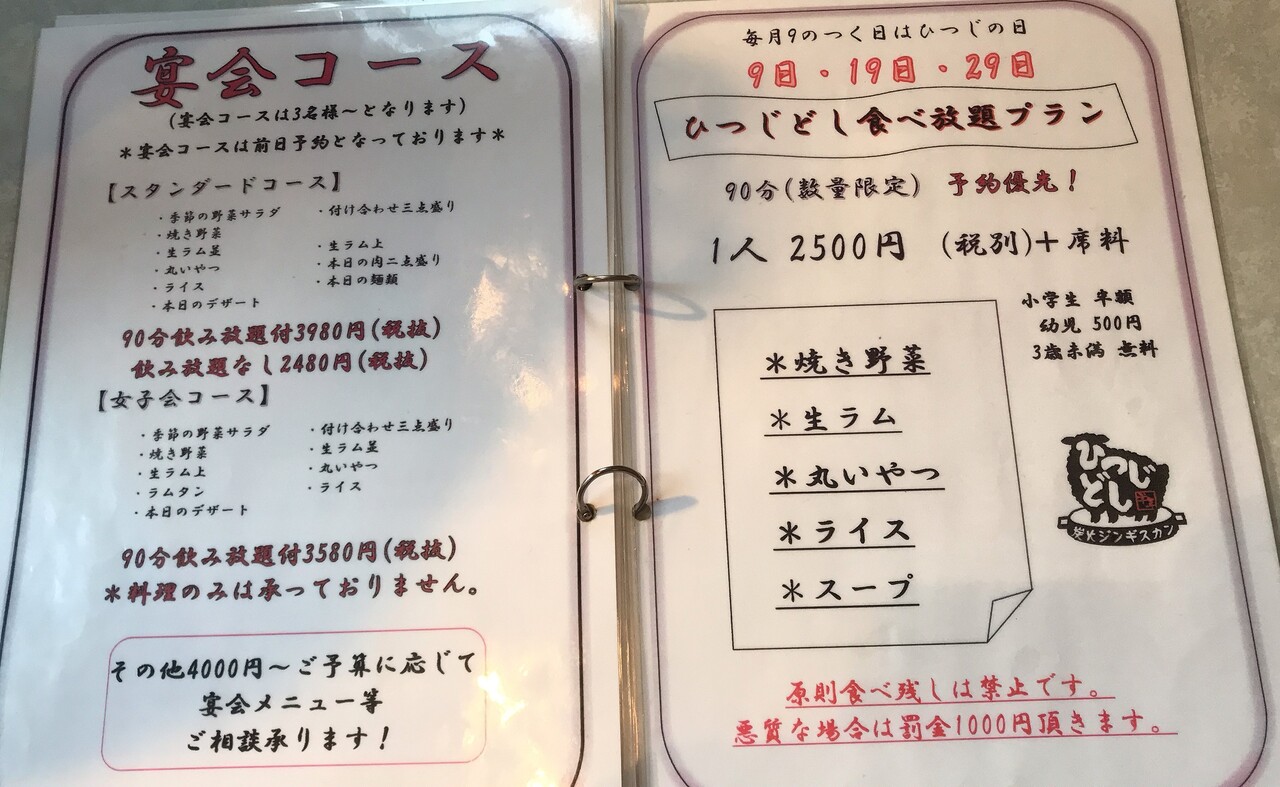 宴会コース
(宴会コースは3名様～となります)
＊宴会コースは前日予約となっております＊
【スタンダードコース】
・季節の野菜サラダ ・付け合わせ三点盛り
・焼き野菜
・生ラム並 ・生ラム上
・丸いやつ ・本日の肉二点盛り
・ライス ・本日の麺類
・本日のデザート
90分飲み放題付3980円(税抜)
飲み放題なし2480円(税抜)
【女子会コース】
・季節の野菜サラダ ・付け合わせ三点盛り
・焼き野菜 ・生ラム並
・生ラム上 ・丸いやつ
・ラムタン ・ライス
・本日のデザート
90分飲み放題付3580円(税抜)
＊料理のみは承っておりません。
その他4000円～ご予算に応じて
宴会メニュー等
ご相談承ります！
毎月9のつく日はひつじの日
9日・19日・29日
ひつじどし食べ放題プラン
90分(数量限定) 予約優先！
1人 2500円 (税別)＋席料
小学生 半額
幼児 500円
3歳未満 無料
＊焼き野菜
＊生ラム
＊丸いやつ
＊ライス
＊スープ
ひつじ
どし
炭火ジンギスカン
原則食べ残しは禁止です。
悪質な場合は罰金1000円頂きます。